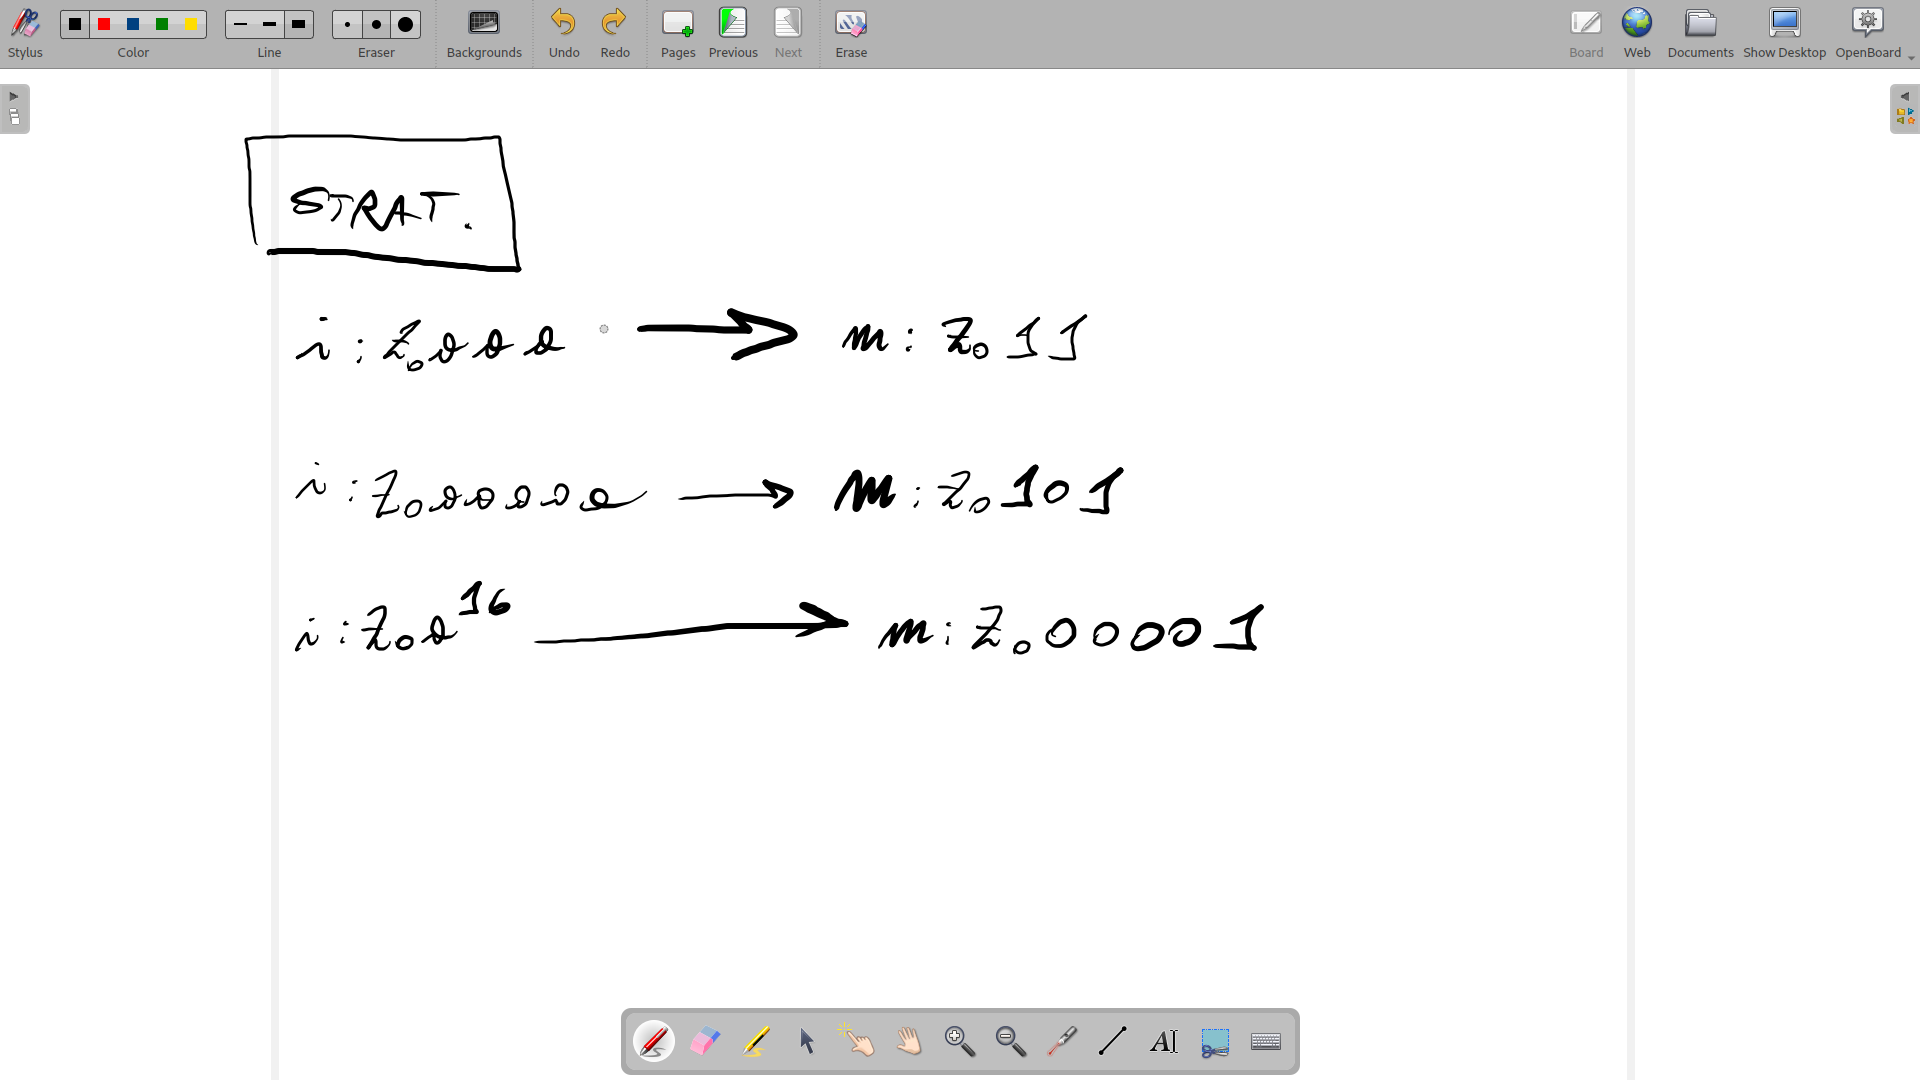 Stylus Color Line Eraser Backgrounds Undo Redo Pages Previous Next Erase Board Web Documents Show Desktop OpenBoard
STRAT.
i : Z₀ a a a → m : Z₀ 1 1
i : Z₀ a a a a a → m : Z₀ 1 0 1
i : Z₀ a¹⁶ → m : Z₀ 0 0 0 0 1